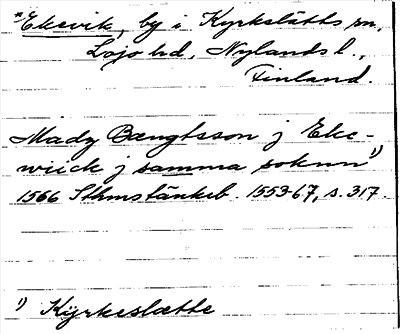 *Eksvik, by i Kyrkslätts sn,
Lojo hd, Nylands l.,
Finland.
Mady Bængtsson j Eke-
wiick j samma soknn 1)
1566 Sthmstänkeb. 1553-67, s. 317.
1) Kÿrkeslætte